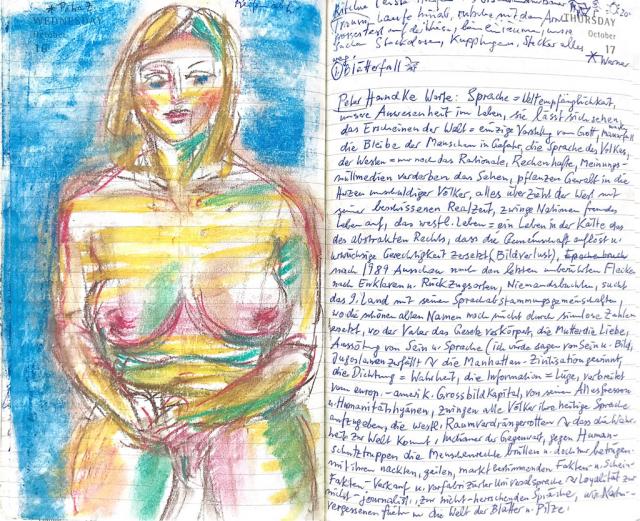 * Petra Z.
WEDNESDAY
October
16
THURSDAY
October
17
suchen Steckdosen, Kupplungen, Stecker alles
* Werner
Blätterfall
Peter Handke Worte: Sprache = Weltempfänglichkeit,
unsere Anwesenheit im Leben, sie lässt sich sehen,
das Erscheinen der Welt = einzige Vorstellung von Gott,
die Bleibe der Menschen in Gefahr, die Sprache des Volkes,
der Westen = nur noch das Rationale, Rechenhafte, Meinungs-
müllmedien verderben das Sehen, pflanzen Gewalt in die
Herzen unschuldiger Völker, alles überzieht der West mit
seiner beschissenen Realzeit, zwingt Nationen fremdes
Leben auf, das westl. Leben = ein Leben in der Kälte des
des abstrakten Rechts, dass die Gemeinschaft auflöst u.
urwüchsige Gerechtigkeit zersetzt (Bildverlust),
nach 1989 Ausschau nach den letzten unberührten Flecken
nach Enklaven u. Rückzugsorten, Niemandsbuchten, sucht
das 9. Land mit seinen Sprachabstammungsgemeinschaften,
wo die schönen alten Namen noch nicht durch sinnlose Zahlen
ersetzt, wo der Vater das Gesetz verkörpert, die Mutter die Liebe,
Aussöhnung von Sein u. Sprache (ich würde sagen von Sein u. Bild,
Jugoslawien zerfällt die Manhattan-Zivilisation gewinnt,
die Dichtung = Wahrheit, die Information = Lüge, verbreitet
vom europ.-amerik. Grossbildkapital, von seinen Allesfressern
u. Humanitätshyänen, zwingen alle Völker ihre heilige Sprache
aufzugeben, die westl. Raumverdrängerrotten dass die Wahr-
heit zur Welt kommt, Indianer der Gegenwart, gegen Human-
schutztruppen die Menschenrechte brüllen u. doch nur betrügen
mit ihren nackten, geilen, marktbestimmenden Fakten u. Schein-
Fakten - Verkauf u. zur Universalsprache Loyalität zur
nicht-journalist., zur nicht-herrschenden Sprache, wie Natur-
vergessenen in die Welt der Blätter u. Pilze!